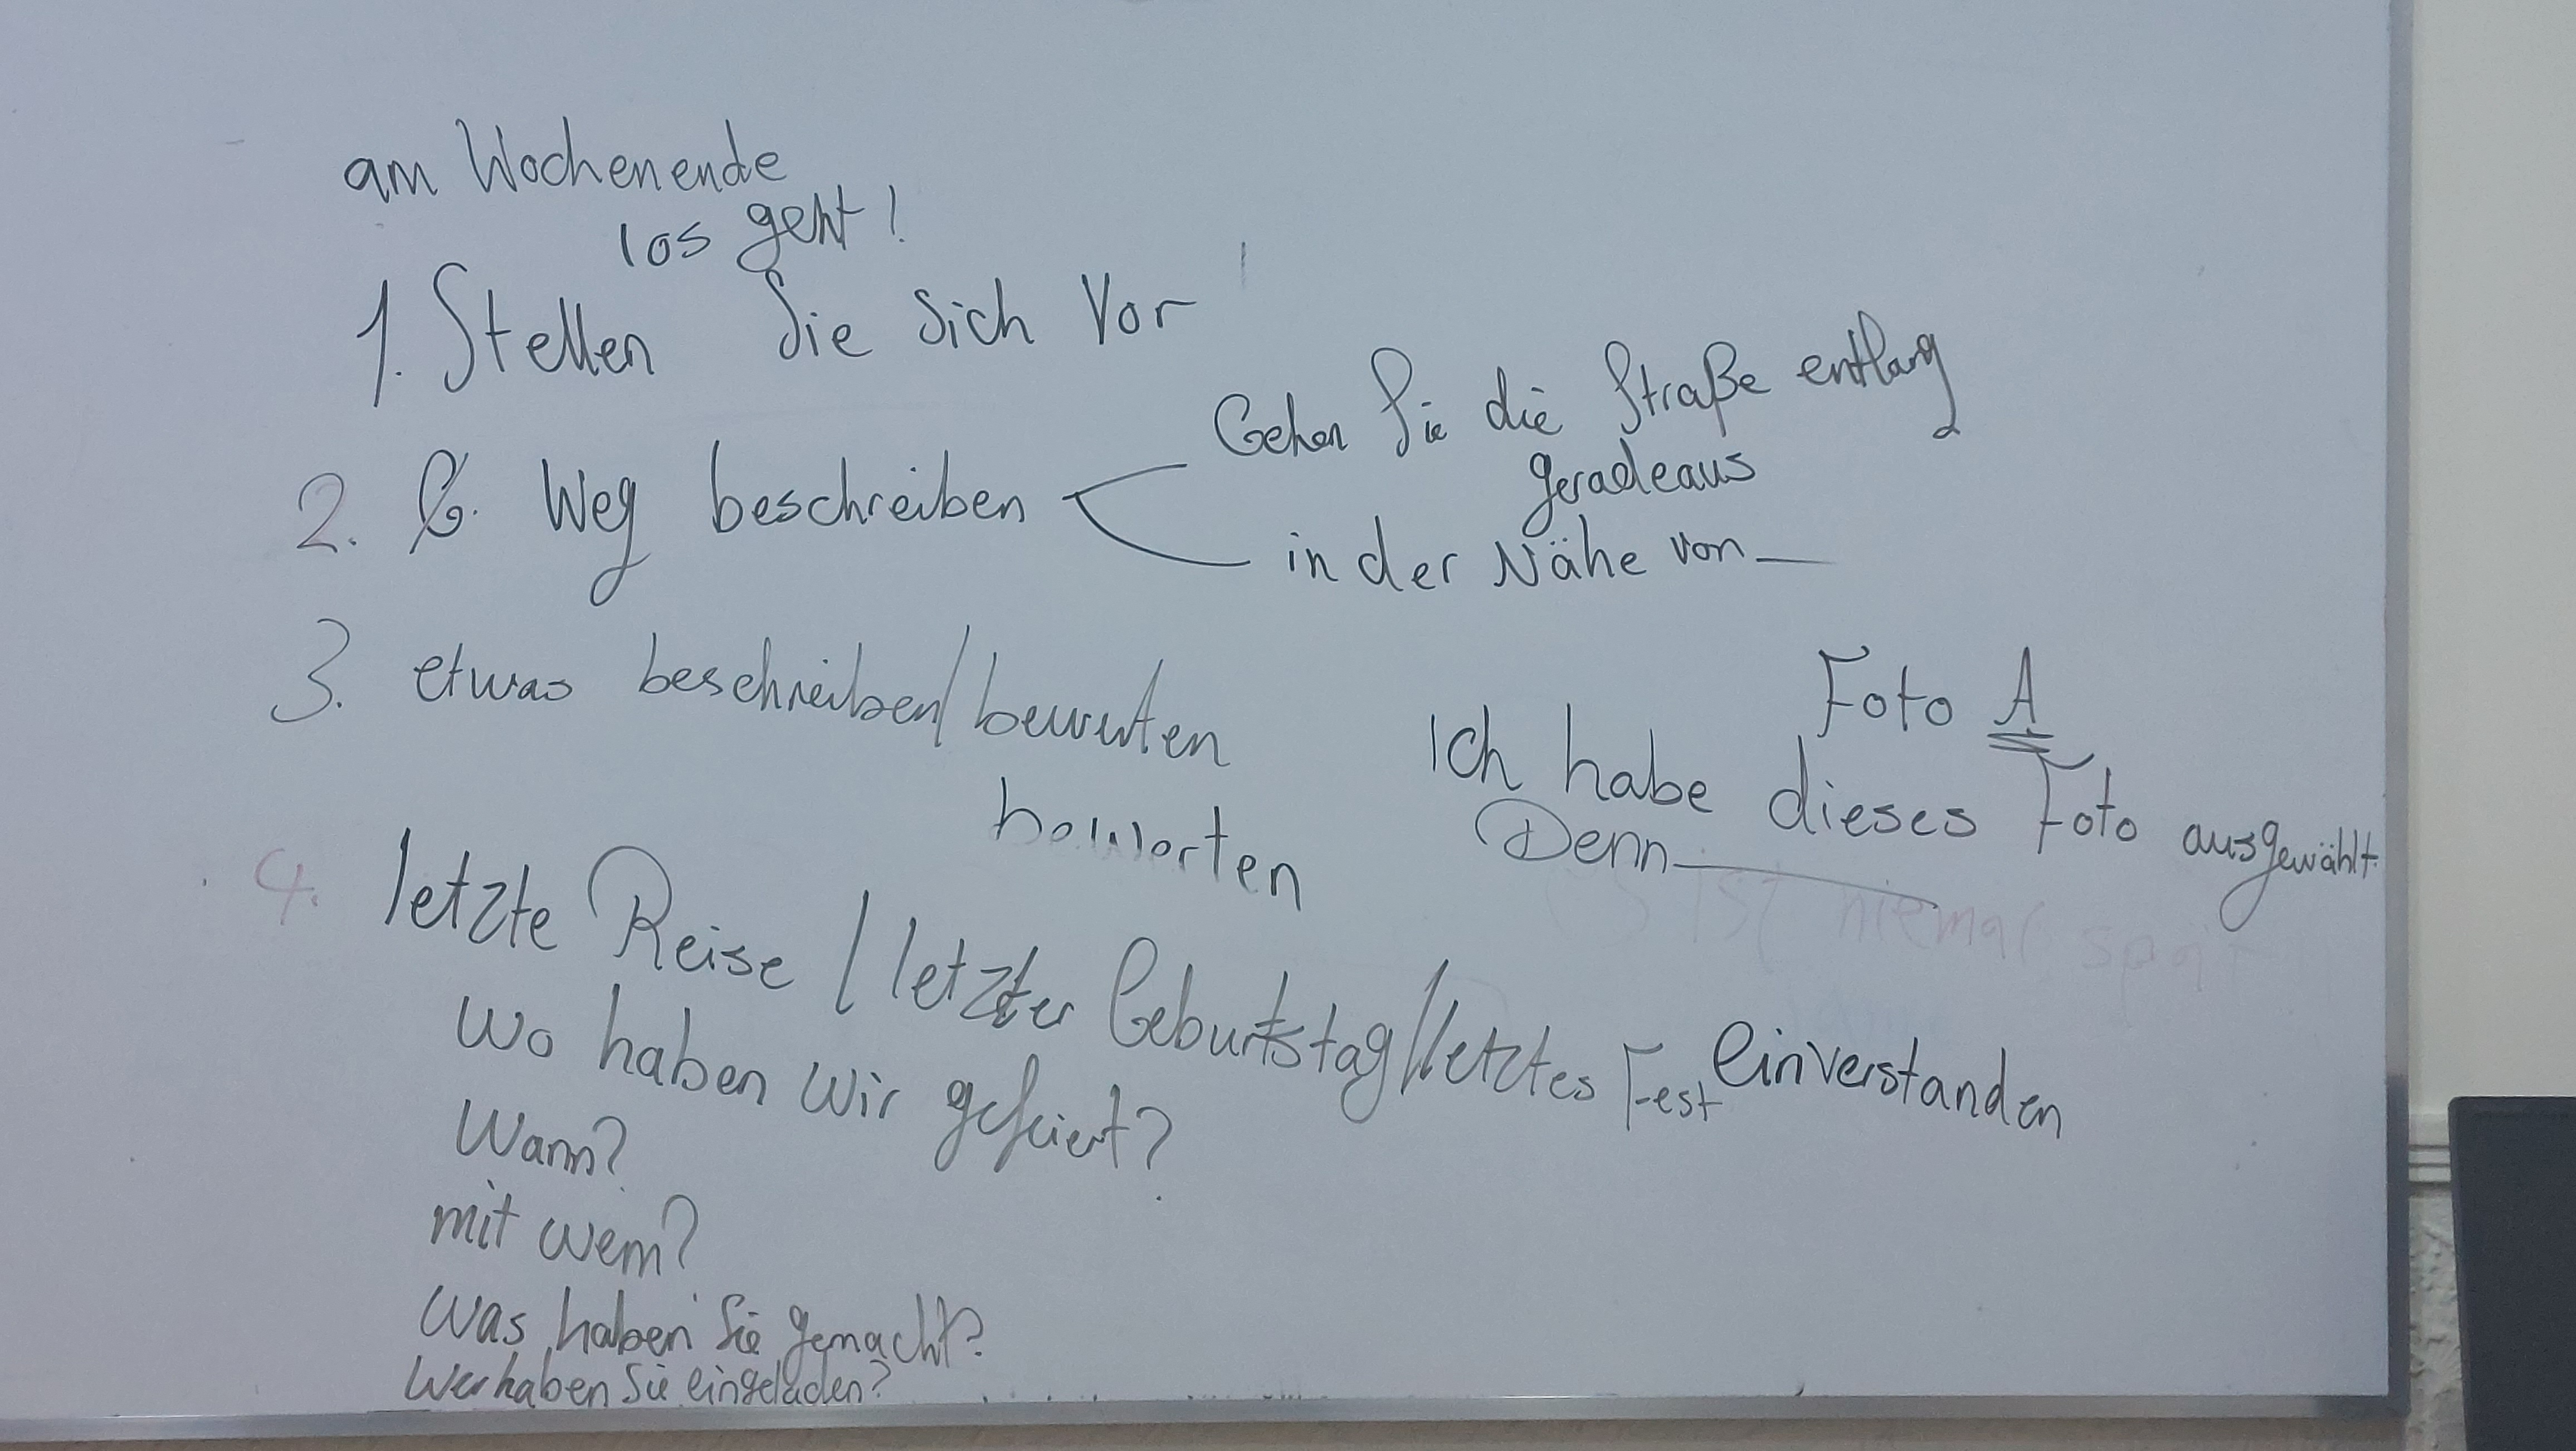 am Wochenende
los geht!
1. Stellen Sie sich vor
2. Weg beschreiben
Gehen Sie die Straße entlang
geradeaus
in der Nähe von
3. etwas beschreiben/bewerten
Foto A
Ich habe dieses Foto ausgewählt
Denn
4. letzte Reise / letzter Geburtstag / letztes Fest
einverstanden
Wo haben wir gefeiert?
Wann?
mit wem?
Was haben Sie gemacht?
Wer haben Sie eingeladen?
ist niemal